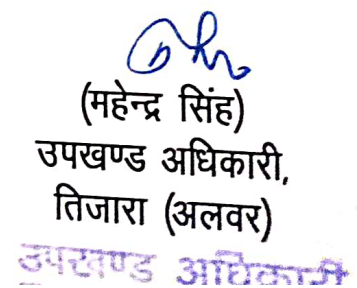 (महेन्द्र सिंह)
उपखण्ड अधिकारी,
तिजारा (अलवर)
उपखण्ड अधिकारी